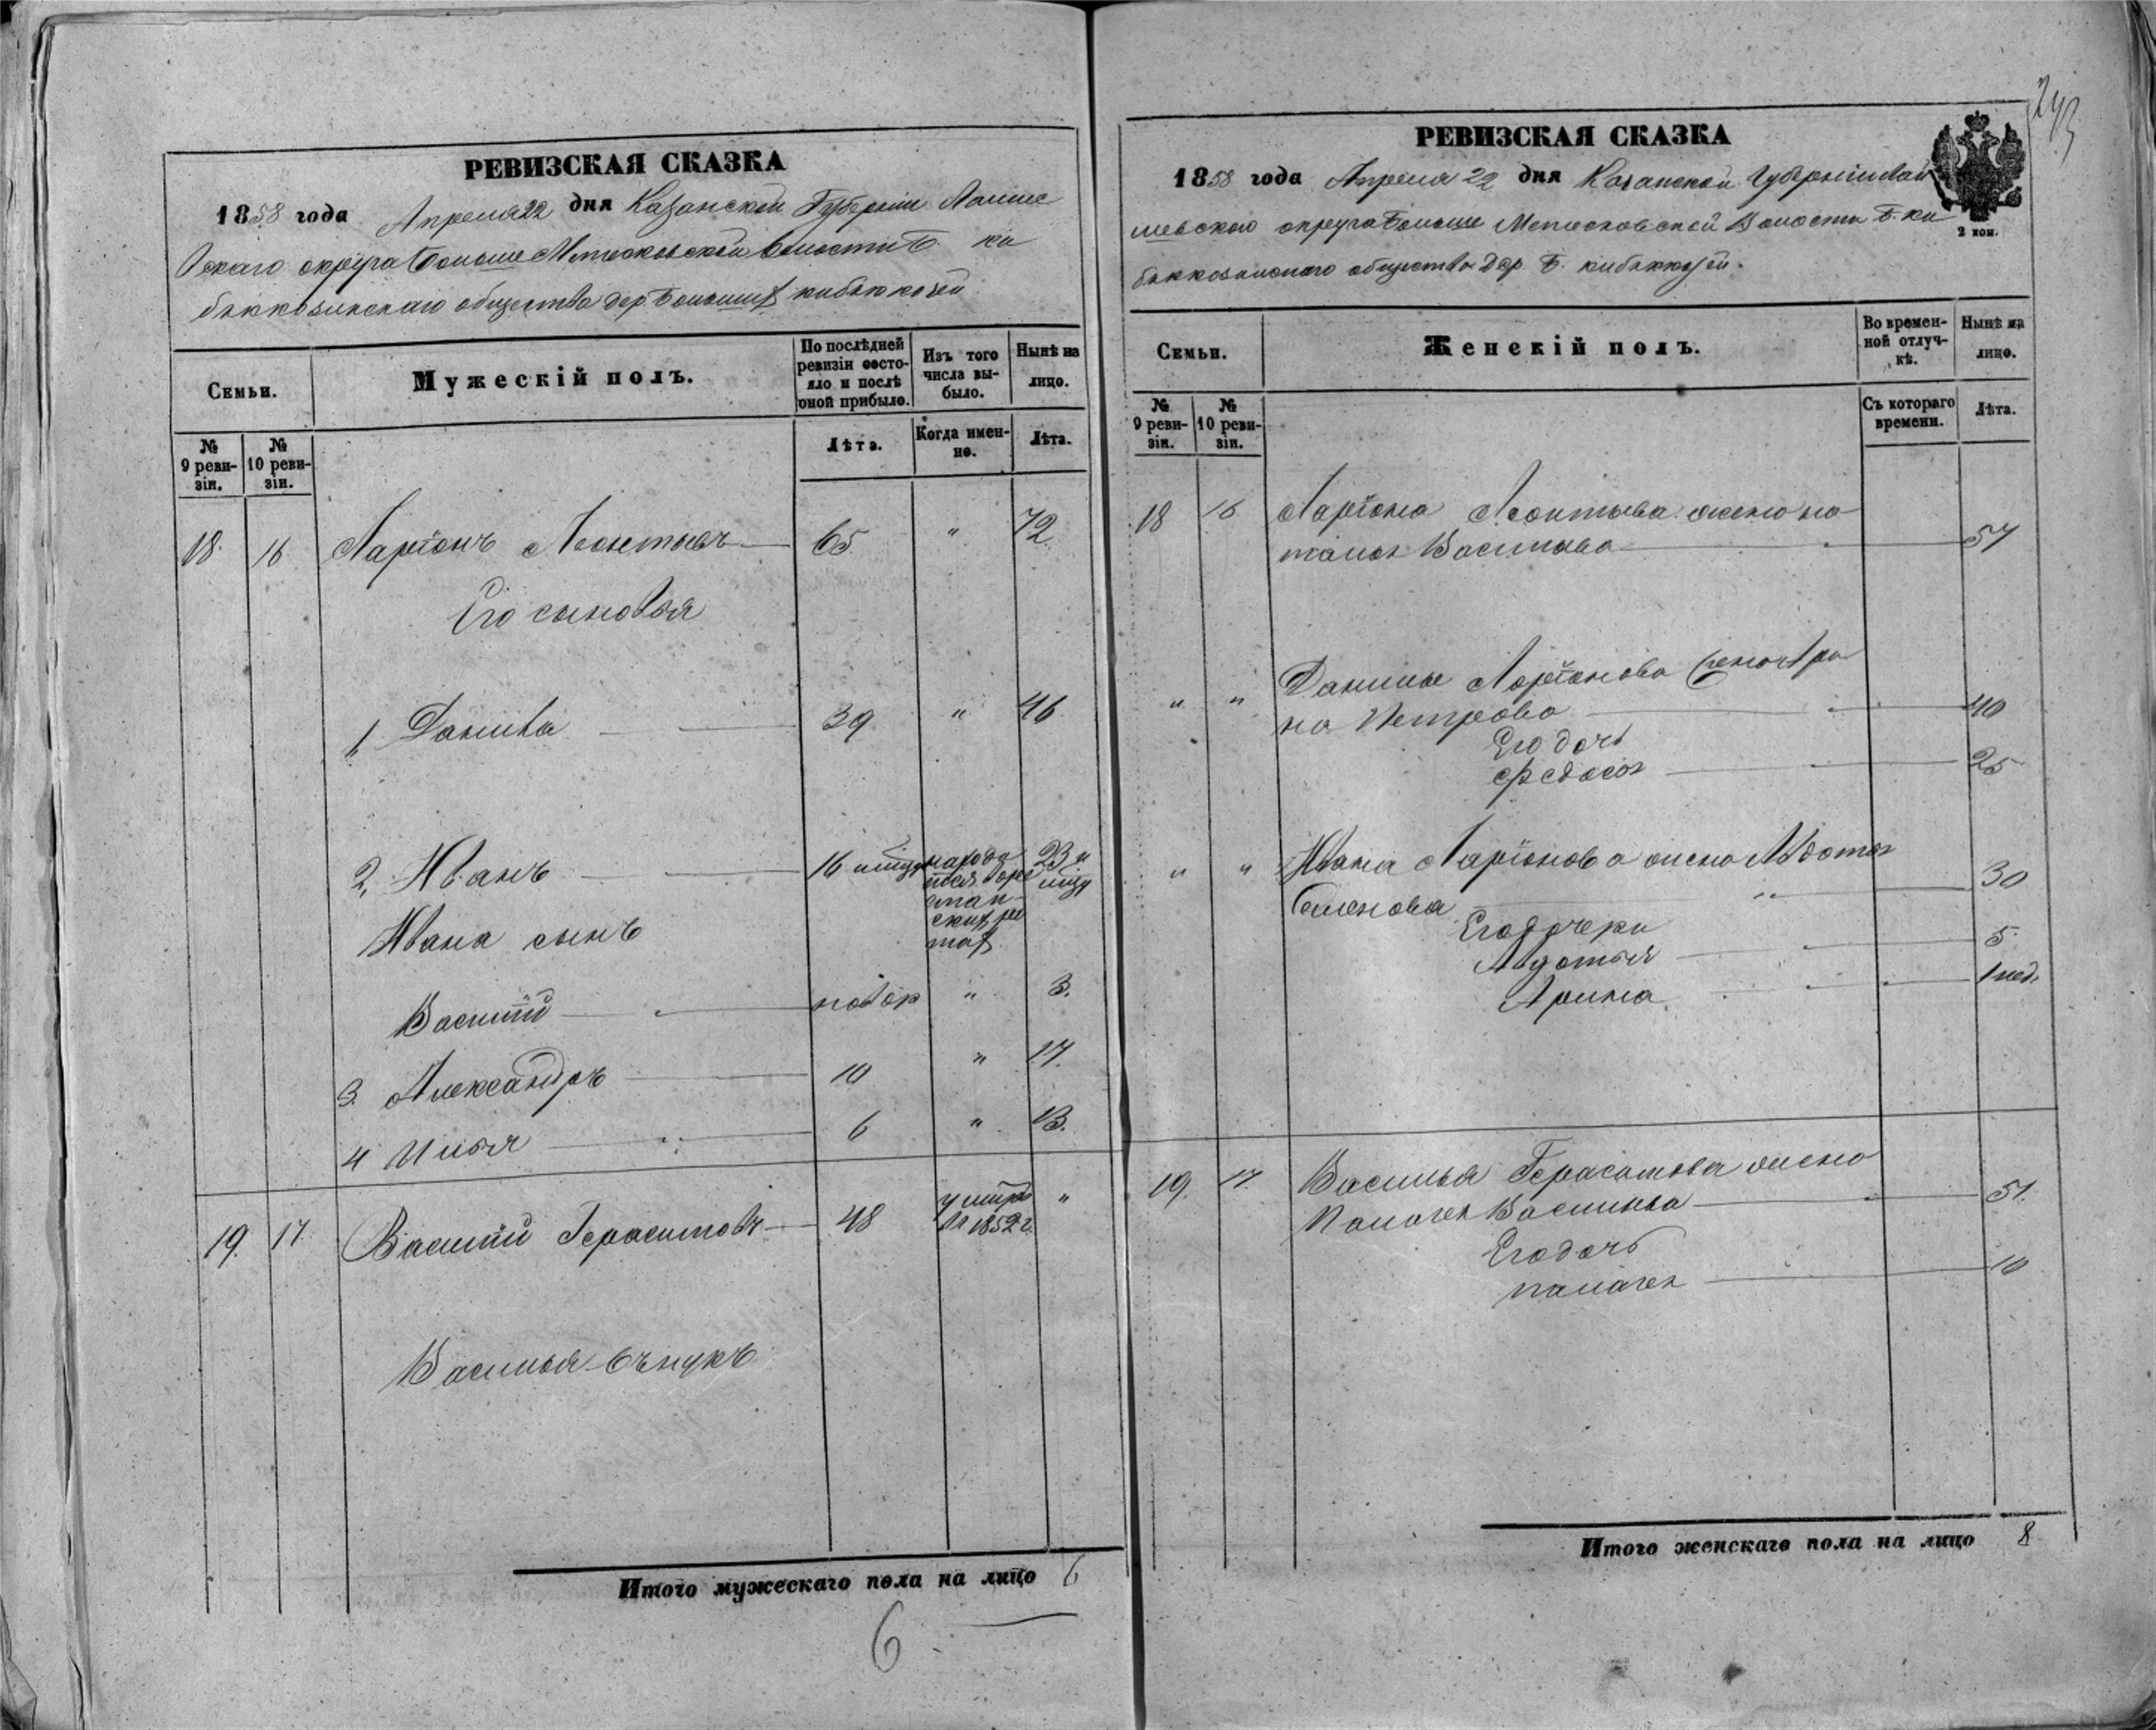 РЕВИЗСКАЯ СКАЗКА
1858 года Апреля 22 дня Казанской Губерніи Лаише
вскаго округа Больше Метесковской волости Б. ки
бяккозинскаго общества дер Большихъ кибяккозей
Семьи.
Мужескій полъ.
По послѣдней ревизіи состо-
яло и послѣ
оной прибыло.
Изъ того
числа вы-
было.
Нынѣ на
лицо.
№
9 реви-
зіи.
№
10 реви-
зіи.
Лѣта.
Когда имен-
но.
Лѣта.
18. 16 Ларіонъ Леонтьевъ 65 " 72.
Его сыновья
1 Данила 39 " 46
2, Иванъ 16
Ивана сынъ
Василій новор " 3.
3. Александръ 10 " 17.
4 Илья 6 " 13.
19. 17. Василій Герасимовъ 48 умре "
въ 1852 г.
Василья внукъ
Итого мужескаго пола на лицо 6
6
243
РЕВИЗСКАЯ СКАЗКА
1858 года Апреля 22 дня Казанской Губерніи Лаи
шевскаго округа Больше Метесковской Волости Б. ки
бяккозинскаго общества Дер. Б. кибяккозей.
2 коп.
Семьи.
Женскій полъ.
Во времен-
ной отлуч-
кѣ.
Нынѣ на
лицо.
№
9 реви-
зіи.
№
10 реви-
зіи.
Съ котораго
времени.
Лѣта.
18 16 Ларіона Леонтьева жена на
талья Васильева 57
" " Данилы Ларіонова жена Ири
на Петрова 40
Его дочь
Федосья 25
" " Ивана Ларіонова жена Авдотья
Семенова 30
Его дочери
Авдотья 5
Арина 1 нед.
19. 17 Василья Герасимова жена
Палагея Васильева 51.
Его дочь
палагея 10
Итого женскаго пола на лицо 8